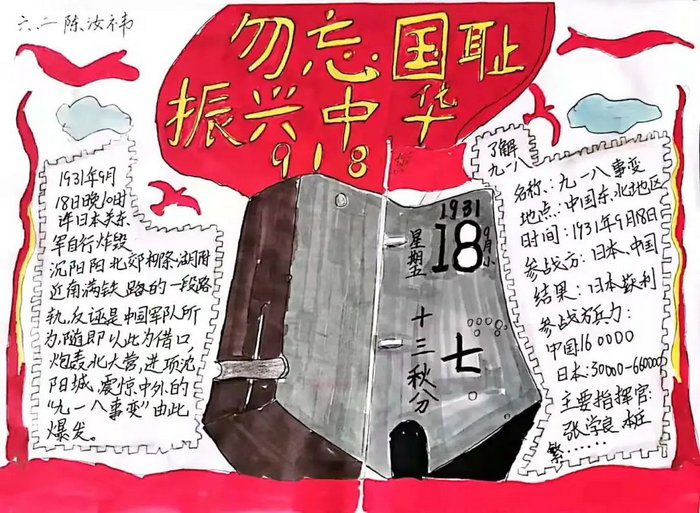 六、二陈汝祎
勿忘国耻
振兴中华
918
1931年9月
18日晚10时
许日本关东
军自行炸毁
沈阳阳北郊柳条湖附
近南满铁路的一段路
轨,反诬是中国军队所
为,随即以此为借口
炮轰北大营,进项沈
阳城,震惊中外的
“九一八事变”由此
爆发。
1931
18
9月小
星期五
七
十三秋分
了解
九一八
名称:九一八事变
地点:中国东北地区
时间:1931年9月18日
参战方:日本、中国
结果:日本获利
参战方兵力:
中国160000
日本:30000-660000
主要指挥官:
张学良 本庄
繁......